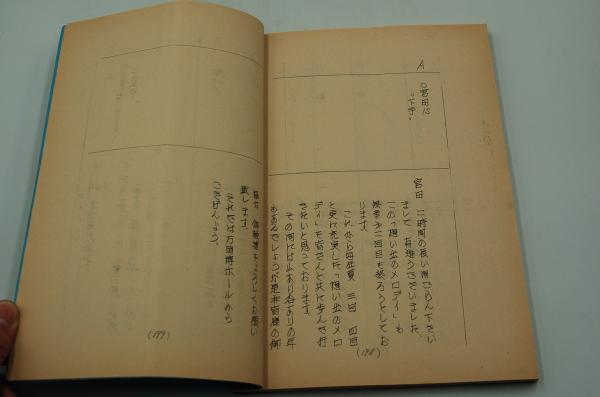 A
○宮田 is
"下手"
宮田 二時間の長い間ごらん下さい
まして、有難うございました。
この「想い出のメロディ」も
無事第二回目を終ろうとしてお
ります。
これから毎年夏 三回 四回
と更に充実した「想い出のメロ
ディ」を皆さんと共に歩んで行
きたいと思っております。
その間には山あり谷ありの年
もあるでしょうが是非皆様の御
協力 御鞭撻をよろしくお願い
致します。
それでは万国博ホールから
ごきげんよう。
(198)
(199)